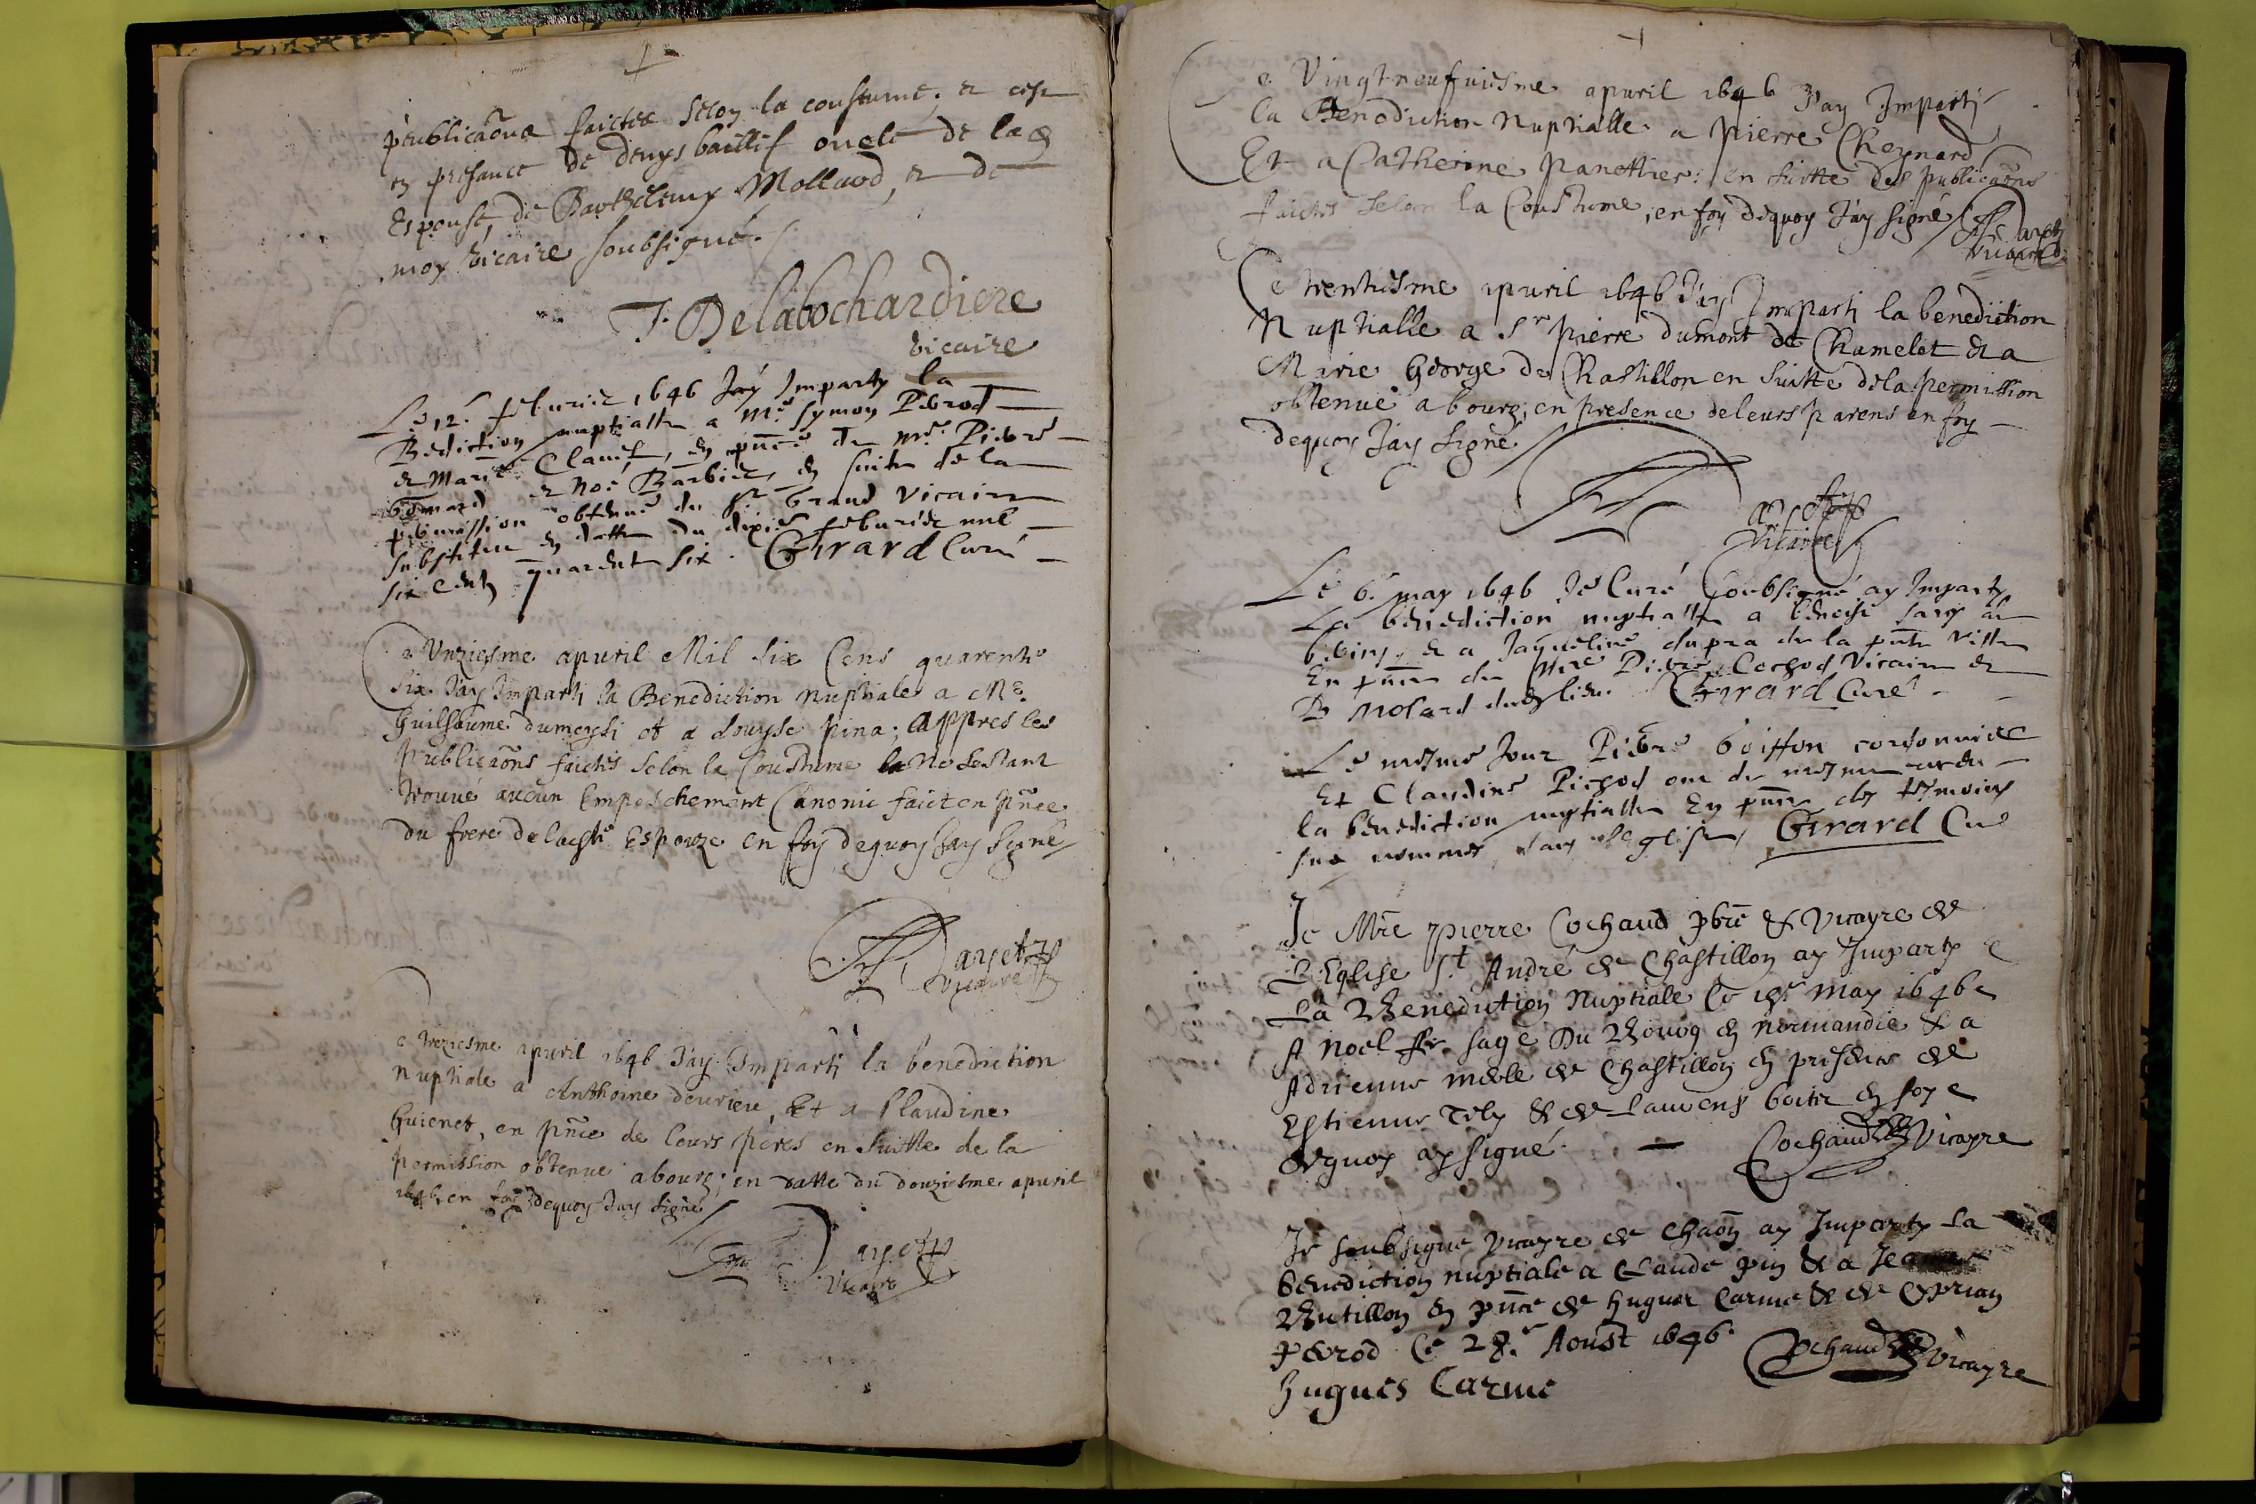 publicaōns faictes selon la coustume, et ce
en presance de denys baillif oncle de lad
Espouse, de Barthelemy Mollard, et de
moy vicaire soubsigné.
J. Delabochardiere
vicaire
Le 12e feburier 1646 Jay Imparty la
Bediction nuptialle a Me Symon Perrod
et Marie Clauel, en pnce de Mre Pierre
et Noe Barbier, en suite de la
permission obtenue du Sr Grand Vicaire
substitue en datte du dixie feburier mil
six cents quarente six. Girard Curé
Ce Unziesme apuril Mil six Cens quarente
six. J'ay Imparti la Benediction Nuptiale a Me.
Guilhaume dumeysi et a Louyse pina; appres les
publicaōns faictes selon la Coustume ne sestant
trouué aucun Empeschement Canonic faict en pñce
du frere de lade Espouze en foy dequoy Jay signé
Dayet
Vicaire
Ce treziesme apuril 1646 J'ay Imparti la benediction
Nuptiale a Anthoine deurieu, Et a Claudine
Guienet, en pñce de leurs peres en suitte de la
permission obtenue a bourg; en datte du douziesme apuril
1646, en foy dequoy Jay signé
Dayet
Vicaire
Ce Vingtneufuiesme apuril 1646 J'ay Imparti
la Benediction Nuptialle a pierre Cheynard
Et a Catherine Panettier: en suitte des publicaōns
faictes selon la Coustume, en foy dequoy J'ay signé Dayet
Vicaire
Ce trentiesme apuril 1646 J'ay Imparti la benediction
Nuptialle a Sr pierre dumont de Chamelet et a
Marie George de Chastillon en suitte de la permission
obtenue a bourg; en presence de leurs parens en foy
dequoy Jay signé
Dayet
Vicaire
Le 6. may 1646 Je Curé soubsigné ay Imparty
La benediction nuptialle a
et a Jaqueline dupra de la pnte Ville
En pnce de Mre Pierre Cochod Vicaire et
B Molard dud lieu. Girard Curé
Le mesme Jour Pierre boisson cordonnier
Et Claudine Pichod ont de mesme
la benediction nuptialle En pnce des tesmoins
sus nommes, dans leglise, Girard Curé
Je Mre pierre Cochaud pbre & Vicayre de
L'Eglise St André de Chastillon ay Imparty
La Benediction Nuptiale Ce may 1646
A Noel sage Du Bourg en Normandie & a
Adrienne de Chastillon en presence de
Estienne & de Laurens en foy
dequoy ay signé. Cochaud Vicayre
Je soubsigné Vicayre de Chaōn ay Imparty La
benediction nuptiale a Claude pin & a
Butillon en pnce de Hugues Carme & de Cyprian
Perrod Ce 28e Aoust 1646. Cochaud Vicayre
Hugues Carme